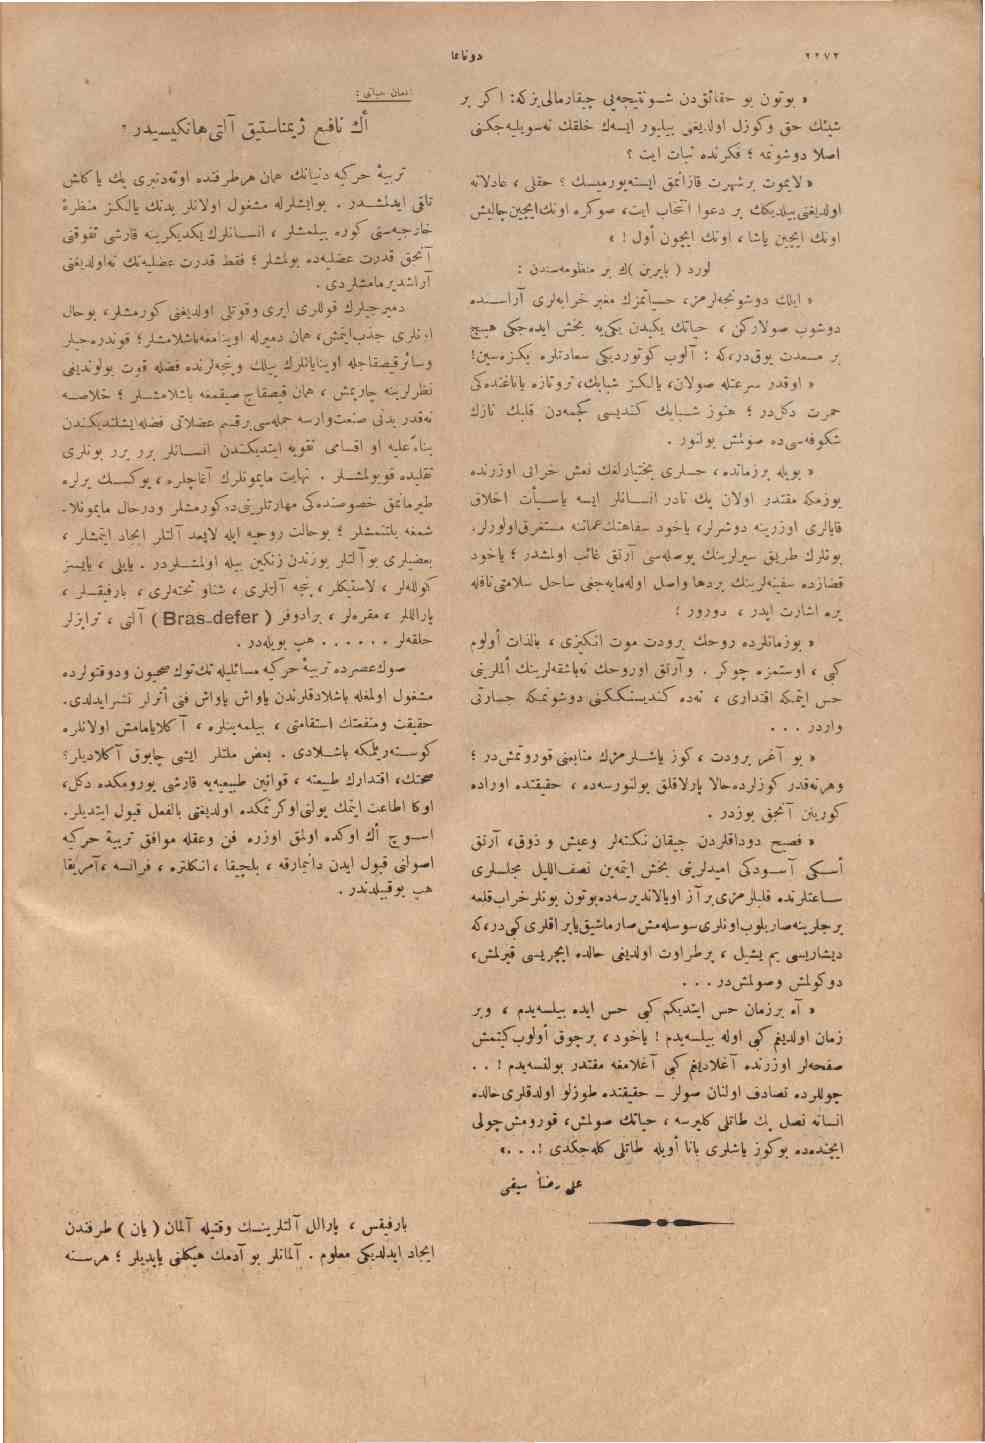 ٢٢٧٢
دوناما
« بوتون بو حقائقدن شو نتیجه‌یی چیقارمالی‌یز که: اکر بر
شیئك حق وکوزل اولدیغی بیلیور ایسه‌ك خلقك نه‌سویلیه‌جکنی
اصلا دوشونمه ؛ فکرنده ثبات ایت ؟
« لایموت برشهرت قازانمق ایسته‌یورمیسك ؟ حقلی ، عادلانه
اولدیغنی بیلدیکك بر دعوا انتخاب ایت، صوکره اونك‌ایچین‌چالیش
اونك ایچین یاشا ، اونك ایچون أول ! »
لورد ( بایرین )ك بر منظومه‌سندن :
« ایلك دوشونجه‌لرمز، حسیاتمزك مغبر خرابه‌لری آراسنده
دوشوب صولارکن ، حیاتك یکیدن یکی‌یه بخش ایده‌جکی هیچ
بر مسعدت یوقدر،که ؛ آلوب کوتوردیکی سعادتلره بکزه‌سین!
« اوقدر سرعتله صولان، یالکز شبابك، تروتازه یاناغنده‌کی
حمرت دکل‌در ؛ هنوز شبابك کندیسی کچمه‌دن قلبك نازك
شکوفه‌سی‌ده صولمش بولنور .
« بویله برزمانده ، حسلری بختیارلغك نعش خرابی اوزرنده
یوزمکه مقتدر اولان پك نادر انسانلر ایسه یاسیأت اخلاق
قایالری اوزرینه دوشرلر، یاخود سفاهتك‌عماننه مستغرق‌اولورلر.
بونلرك طریق سیرلرینك پوصله‌سی آرتق غائب اولمشدر ؛ یاخود
قضازده سفینه‌لرینك بردها واصل اوله‌مایه‌جغی ساحل سلامتی‌نافله
یره اشارت ایدر ، دورور ؛
« بوزمانلرده روحك برودت موت انکیزی ، بالذات أولوم
کبی ، اوستمزه چوکر . وآرتق اوروحك نه‌باشقه‌لرینك ألملرینی
حس ایتمکه اقتداری ، نه‌ده کندیسنککنی دوشونمکه جسارتی
واردر ...
« بو آغیر برودت ، کوز یاشلرمزك منابعنی قوروتمش‌در ؛
وهرنه‌قدر کوزلرده‌حالا پارلاقلق بولنورسه‌ده ، حقیقتده اوراده
کورینن آنجق بوزدر .
« فصیح دوداقلردن چیقان نکته‌لر وعیش و ذوق، آرتق
أسکی آسوده‌کی امیدلرینی بخش ایتمه‌ین نصف‌اللیل مجلسلری
ساعتلرنده قلبلرمزی بر آز اویالاندیرسه‌ده‌بوتون بونلرخراب‌قلعه
برجلرینه‌صاریلوب‌اونلری‌سوسله‌مش‌صارماشیق‌یاپراقلری‌کبی‌در،که
دیشاریسی یم یشیل ، پرطراوت اولدیغی حالده ایچریسی قیرلمش،
دوکولمش وصولمش‌در ...
« آه برزمان حس ایتدیکم کبی حس ایده بیلسه‌یدم ، وبر
زمان اولدیغم کبی اوله بیلسه‌یدم ! یاخود ، برچوق أولوب‌کیتمش
صفحه‌لر اوزرنده آغلادیغم کبی آغلامغه مقتدر بولنسه‌یدم ! ..
چوللرده تصادف اولنان صولر ــ حقیقتده طوزلو اولدقلری‌حالده
انسانه نصل پك طاتلی کلیرسه ، حیاتك صولمش، قورومش‌چولی
ایچنده‌ده بوکوز یاشلری بانا أویله طاتلی کله‌جکدی !...»
علی رضا سیفی
ادمان حیاتی :
أك نافع ژیمناستیق آلتی‌هانکیسیدر ؟
تربیهٔ حرکیه دنیانك همان هرطرفنده اوته‌دنبری پك یا کلش
تلقی ایدلمشدر . بوایشلرله مشغول اولانلر بدنك یالکز منظرهٔ
خارجیه‌سنی کوره بیلمشلر ، انسانلرك‌یکدیکرینه قارشی تفوقنی
آنجق قدرت عضلیه‌ده بولمشلر ؛ فقط قدرت عضلیه‌نك نه‌اولدیغنی
آراشدیرمامشلردی .
دمیرجیلرك قوللری ایری وقوتلی اولدیغنی کورمشلر، بوحال
اونلری جذب‌ایتمش، همان دمیرله اوینامغه‌باشلامشلر؛ قوندره‌جیلر
وسائرقیصقاجله اوینایانلرك بیلك وپنجه‌لرنده فضله قوت بولوندیغی
نظرلرینه چاریمش ، همان قیصقاج صیقمغه باشلامشلر ؛ خلاصه
نه‌قدر بدنی صنعت‌وارسه جمله‌سی‌برقسم عضلاتی فضله‌ایشلتدیکندن
بناءًعلیه او اقسامی تقویه ایتدیکندن انسانلر برر برر بونلری
تقلیده قویولمشلر . نهایت مایمونلرك آغاچلره ، یوکسك یرلره
طیرمانمق خصوصنده‌کی مهارتلرینی‌ده‌کورمشلر ودرحال مایمونلا-
شمغه یلتنمشلر ؛ بوحالت روحیه ایله لایعد آلتلر ایجاد ایتمشلر ،
بعضیلری بوآلتلر یوزندن زنکین بیله اولمشلردر . یایلی ، یایسز
کولله‌لر ، لاستیکلر ، پنجه آلتلری ، شناو تخته‌لری ، بارفیقسلر ،
پارالللر ، مقره‌لر ، برادوفر ( Bras-defer ) آلتی ، تراپزلر
حلقه‌لر ...... هپ بویله‌در .
صوك‌عصرده تربیهٔ حرکیه مسائلیله تك‌توك صحیون ودوقتورلرده
مشغول اولمغله باشلادقلرندن یاواش یاواش فنی أثرلر نشرایدلدی.
حقیقت ومنفعتك استقامتی ، بیلمه‌ینلره ، آکلایامامش اولانلره
کوسته‌رلمکه باشلادی . بعض ملتلر ایشی چابوق آکلادیلر؛
صحتك، اقتدارك طبیعته ، قوانین طبیعیه‌یه قارشی یورومکده دکل،
اوکا اطاعت ایتمك یولنی‌اوکرنمکده اولدیغنی بالفعل قبول ایتدیلر.
اسوچ أك اوکده اولمق اوزره فن وعقله موافق تربیهٔ حرکیه
اصولنی قبول ایدن دانیمارقه ، بلچیقا ، انکلتره ، فرانسه ،آمریقا
هپ بوقبیلدندر .
بارفیقس ، پارالل آلتلرینك وقتیله آلمان ( یان ) طرفندن
ایجاد ایدلدیکی معلوم . آلمانلر بو آدمك هیکلنی یاپدیلر ؛ هرسنه